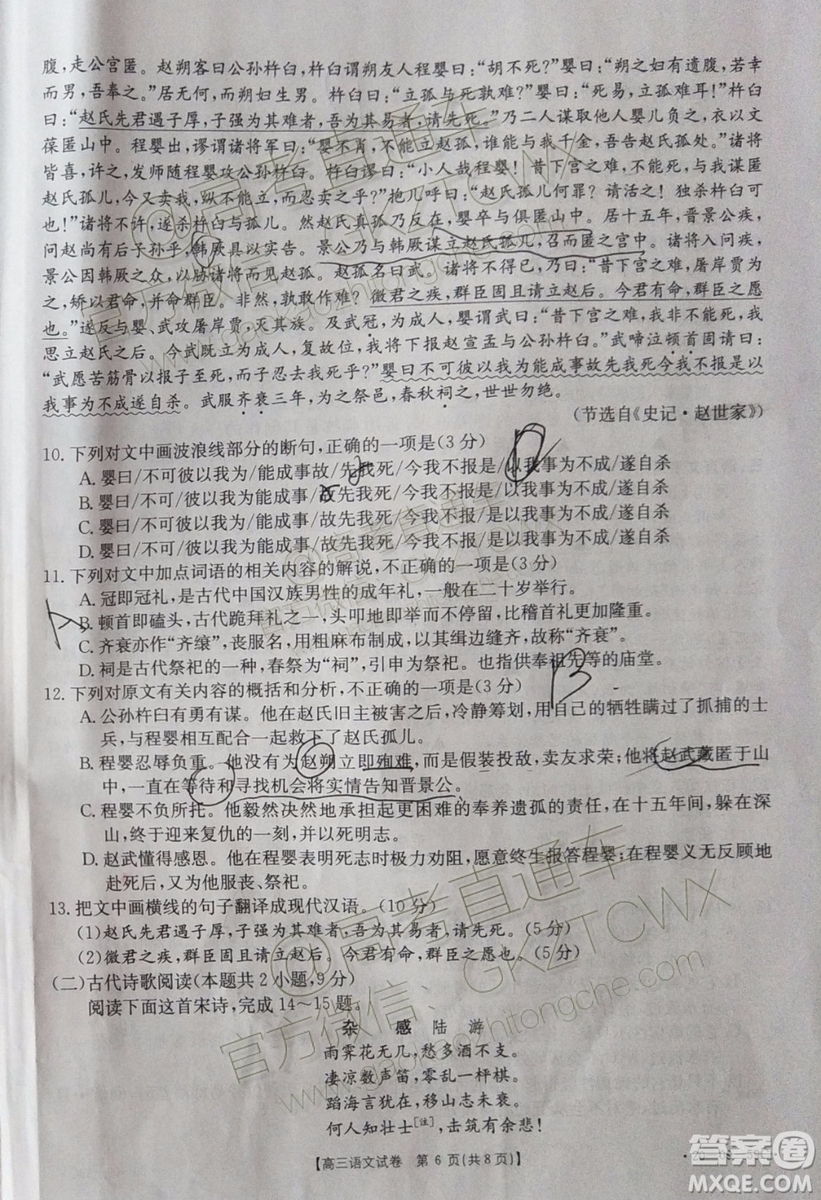 腹，走公宫匿。赵朔客曰公孙杵臼，杵臼谓朔友人程婴曰：“胡不死？”婴曰：“朔之妇有遗腹，若幸
而男，吾奉之。”居无何，而朔妇生男。杵臼曰：“立孤与死孰难？”婴曰：“死易，立孤难耳！”杵臼
曰：“赵氏先君遇子厚，子强为其难者，吾为其易者，请先死。”乃二人谋取他人婴儿负之，衣以文
葆匿山中。程婴出，谬谓诸将军曰：“婴不肖，不能立赵孤，谁能与我千金，吾告赵氏孤处。”诸将
皆喜，许之，发师随程婴攻公孙杵臼。杵臼谬曰：“小人哉程婴！昔下宫之难，不能死，与我谋匿
赵氏孤儿，今又卖我，纵不能立，而忍卖之乎？”抱儿呼曰：“赵氏孤儿何罪？请活之！独杀杵臼
可也！”诸将不许，遂杀杵臼与孤儿。然赵氏真孤乃反在，婴卒与俱匿山中。居十五年，晋景公疾，
问赵尚有后子孙乎，韩厥具以实告。景公乃与韩厥谋立赵氏孤儿，召而匿之宫中。诸将入问疾，
景公因韩厥之众，以胁诸将而见赵孤。赵孤名曰武。诸将不得已，乃曰：“昔下宫之难，屠岸贾为
之，矫以君命，并命群臣。非然，孰敢作难？微君之疾，群臣固且请立赵后。今君有命，群臣之愿
也。”遂反与婴、武攻屠岸贾，灭其族。及武冠，为成人，婴谓武曰：“昔下宫之难，我非不能死，我
思立赵氏之后。今武既立为成人，复故位，我将下报赵宣孟与公孙杵臼。”武啼泣顿首固请曰：
“武愿苦筋骨以报子至死，而子忍去我死乎？”婴曰不可彼以我为能成事故先我死今我不报是以
我事为不成遂自杀。武服齐衰三年，为之祭邑，春秋祠之，世世勿绝。
（节选自《史记·赵世家》）
10. 下列对文中画波浪线部分的断句，正确的一项是（3分）
A. 婴曰/不可彼以我为/能成事故/先我死/今我不报是/以我事为不成/遂自杀
B. 婴曰/不可/彼以我为能成事/故先我死/今我不报是/以我事为不成/遂自杀
C. 婴曰/不可/彼以我为能成事/故先我死/今我不报/是以我事为不成/遂自杀
D. 婴曰/不可/彼以我为能成事/故先我死/今我不报/是以我事为不成/遂自杀
11. 下列对文中加点词语的相关内容的解说，不正确的一项是（3分）
A. 冠即冠礼，是古代中国汉族男性的成年礼，一般在二十岁举行。
B. 顿首即磕头，古代跪拜礼之一，头叩地即行礼方式，比稽首礼更加隆重。
C. 齐衰亦作“齐缞”，丧服名，用粗麻布制成，以其缉边缝齐，故称“齐衰”。
D. 祠是古代祭祀的一种，春祭为“祠”，引申为祭祀。也指供奉祖先等的庙堂。
12. 下列对原文有关内容的概括和分析，不正确的一项是（3分）
A. 公孙杵臼有勇有谋。他在赵氏旧主被害之后，冷静筹划，用自己的牺牲瞒过了抓捕的士
兵，与程婴相互配合一起救下了赵氏孤儿。
B. 程婴忍辱负重。他没有为赵朔立即殉难，而是假装投敌，卖友求荣；他将赵武藏匿于山
中，一直在等待和寻找机会将实情告知晋景公。
C. 程婴不负所托。他毅然决然地承担起更困难的奉养遗孤的责任，在十五年间，躲在深
山，终于迎来光复的一刻，并以死明志。
D. 赵武懂得感恩。他在程婴表明死志时极力劝阻，愿意终生报答程婴；在程婴义无反顾地
赴死后，又为他服丧、祭祀。
13. 把文中画横线的句子翻译成现代汉语。（10分）
（1）赵氏先君遇子厚，子强为其难者，吾为其易者，请先死。（5分）
（2）微君之疾，群臣固且请立赵后。今君有命，群臣之愿也。（5分）
（二）古代诗歌阅读（本题共2小题，9分）
阅读下面这首宋诗，完成14～15题。
杂 感 陆 游
雨霁花无几，愁多酒不支。
凄凉数声笛，零乱一枰棋。
蹈海言犹在，移山志未衰。
何人知壮士[注]，击筑有余悲！
【高三语文试卷 第6页（共8页）】
@高考直通车
官方微信：GKZTCWX
答案圈
MXQE.COM